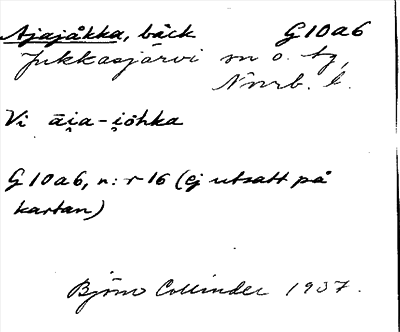 Ajajåkka, bäck G10a6
Jukkasjärvi sn o. tg,
Nmrb. l.
Vi āi̯a-i̯ōhka
G10a6, n:r 16 (ej utsatt på
kartan)
Björn Collinder 1937.